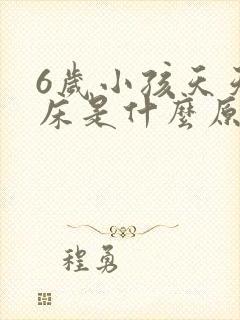 6歲小孩天天
床是什麼原
程勇